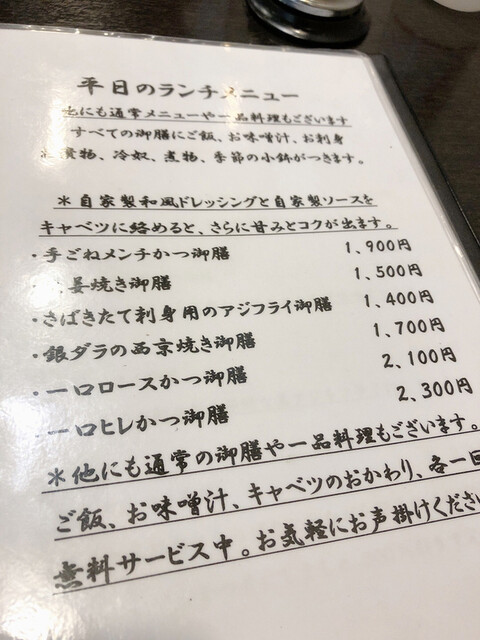 平日のランチメニュー
他にも通常メニューや一品料理もございます
すべての御膳にご飯、お味噌汁、お刺身
漬物、冷奴、煮物、季節の小鉢がつきます。
＊自家製和風ドレッシングと自家製ソースを
キャベツに絡めると、さらに甘みとコクが出ます。
・手ごねメンチかつ御膳 1,900円
姜焼き御膳 1,500円
・さばきたて刺身用のアジフライ御膳 1,400円
・銀ダラの西京焼き御膳 1,700円
・一口ロースかつ御膳 2,100円
一口ヒレかつ御膳 2,300円
＊他にも通常の御膳や一品料理もございます。
ご飯、お味噌汁、キャベツのおかわり、各一回
無料サービス中。お気軽にお声掛けくださ